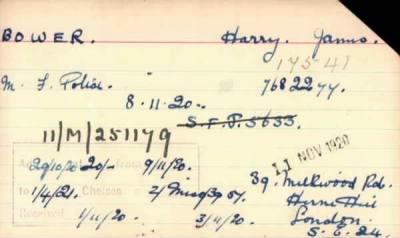 BOWER. Harry. James.
17541
M. F. Police. 768277.
8.11.20.
S.F.P. 5633.
11/M/251179
11 NOV 1920
29/10/20 20/- 9/11/20.
39. Milkwood Rd.
to 1/4/21. Chelsea 2/ Misc/39 57.
Herne Hill
London.
Received 1/11/20. 3/11/20.
S.E. 24.